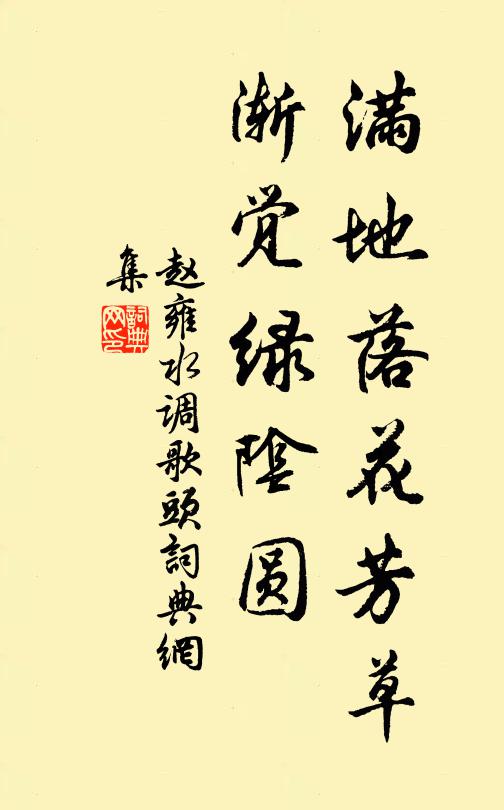 满地落花芳草
渐觉绿陰圆
赵雍水调歌頭詞典網
集
詞典
网印